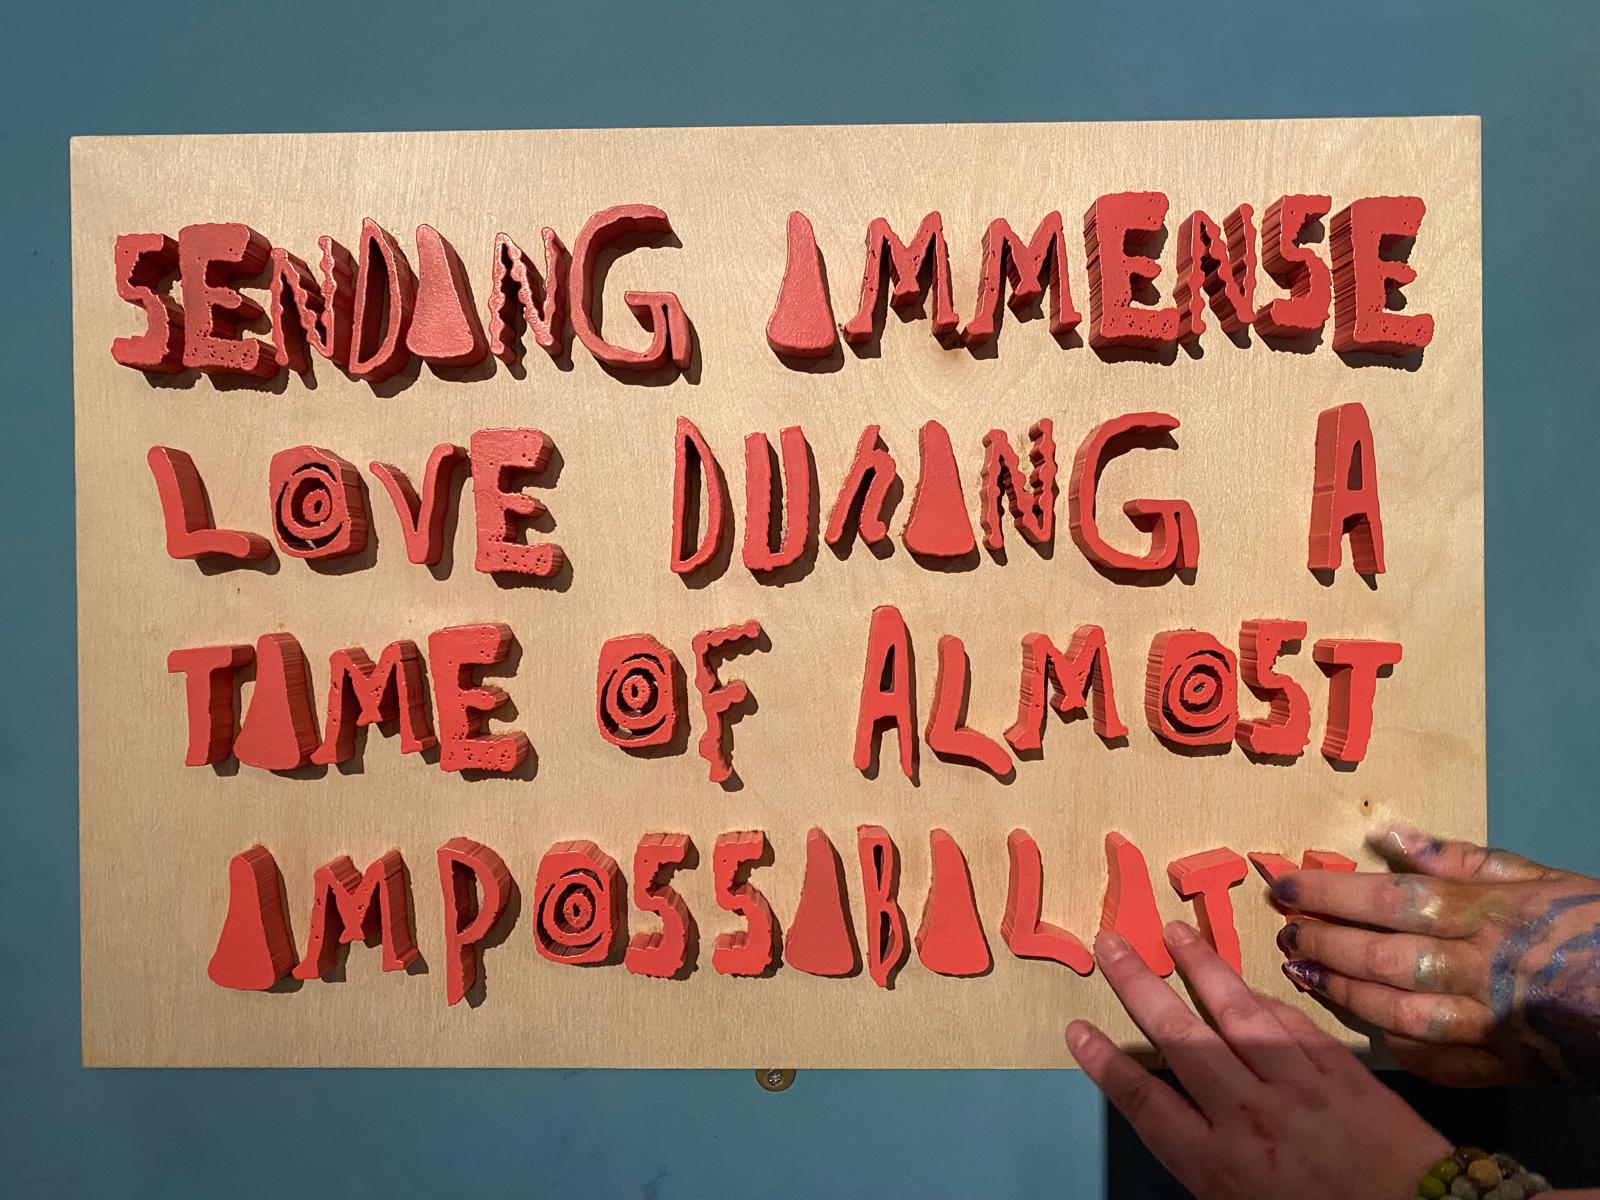 SENDING IMMENSE
LOVE DURING A
TIME OF ALMOST
IMPOSSIBILITY